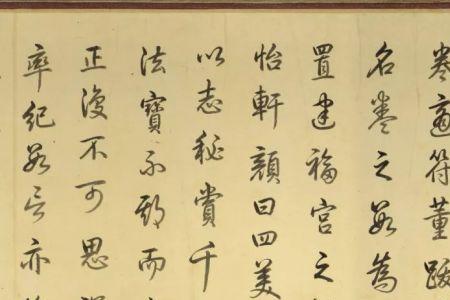 卷適符董跋
名卷之數為
置建福宮之
怡軒顏曰四美
以志秘賞千
法寶不而
正復不可思
率紀數言亦